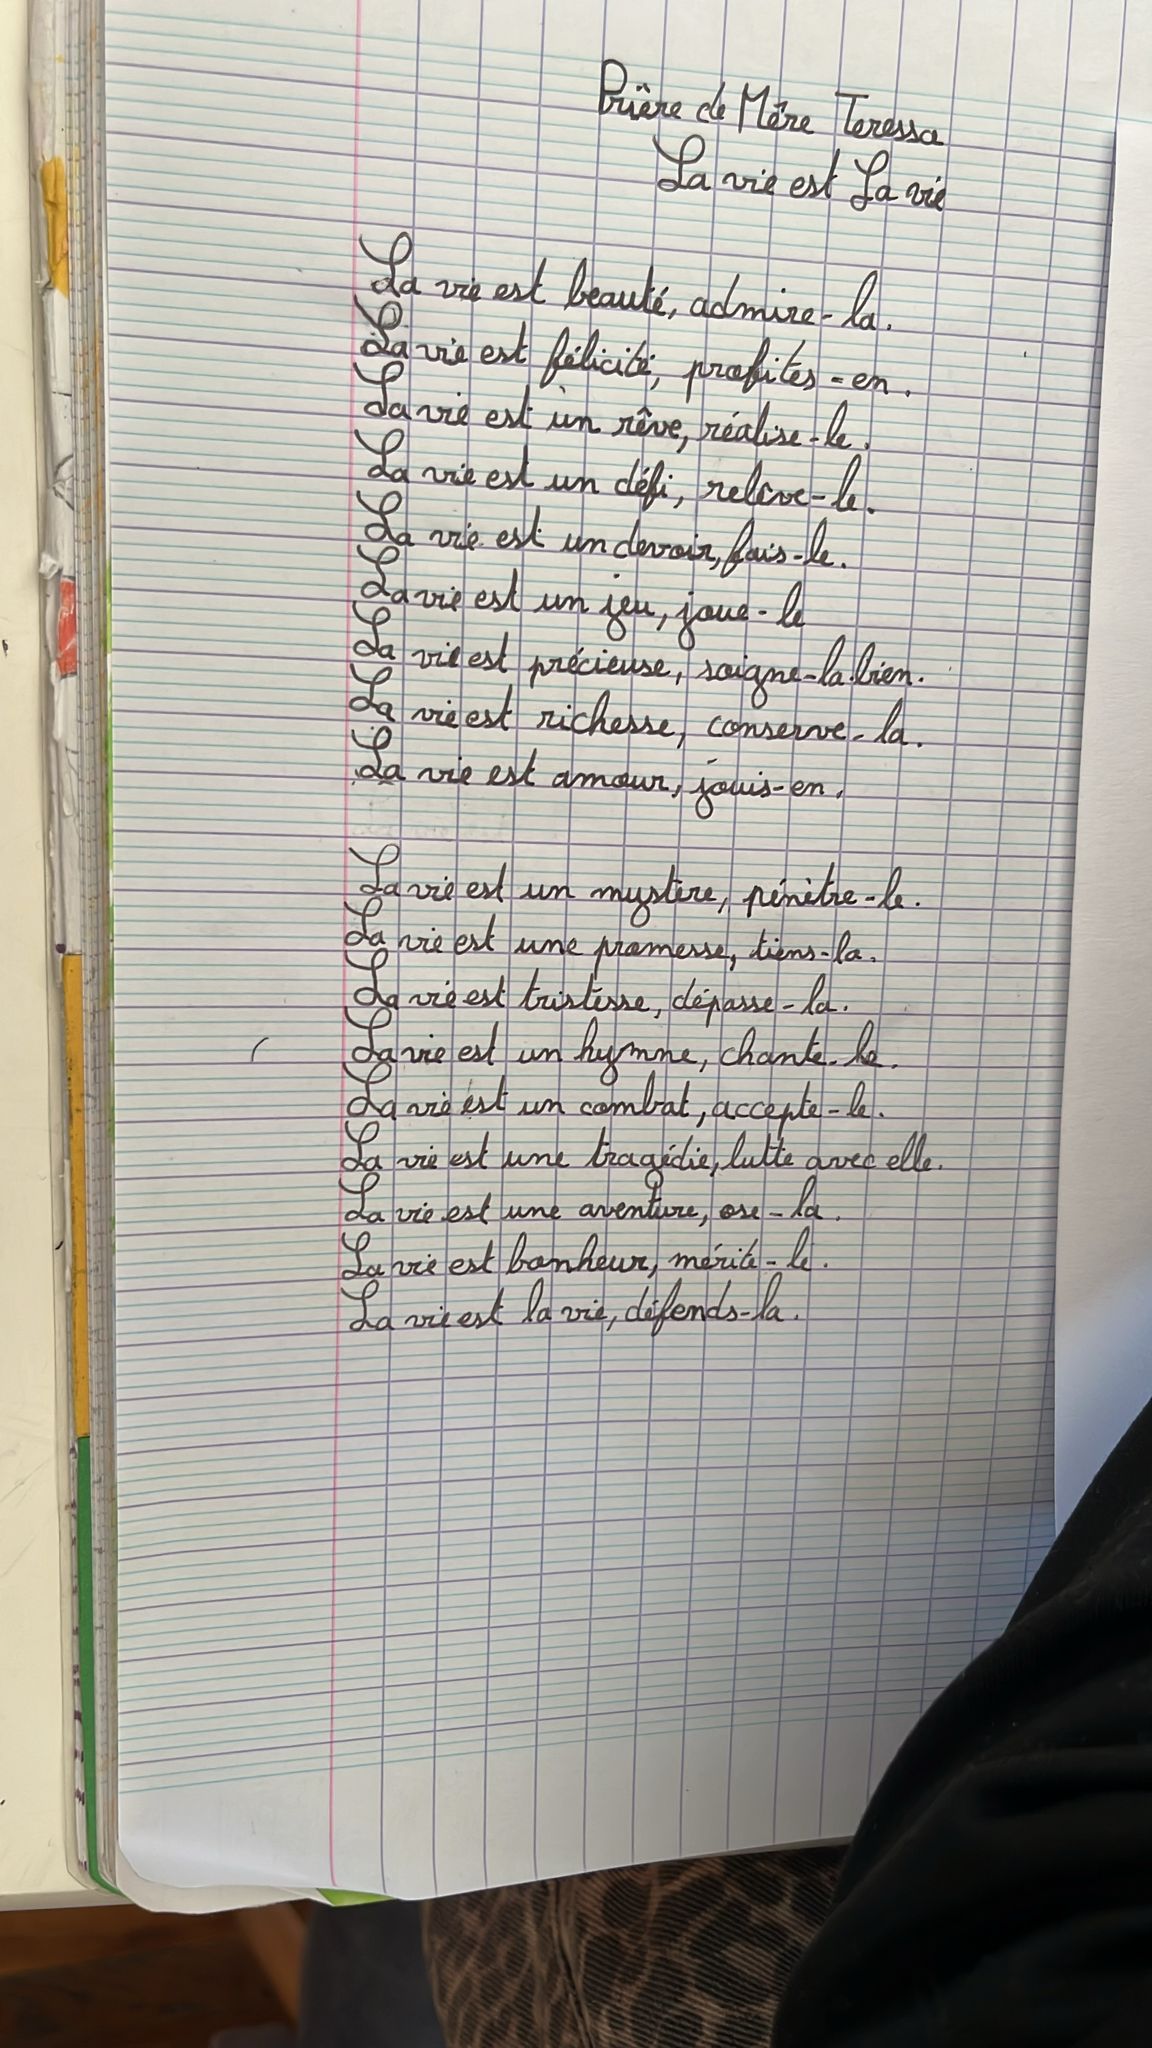 Prière de Mère Teressa
La vie est La vie
La vie est beauté, admire-la.
La vie est félicité, profites-en.
La vie est un rêve, réalise-le.
La vie est un défi, relève-le.
La vie est un devoir, fais-le.
La vie est un jeu, joue-le
La vie est précieuse, soigne-la bien.
La vie est richesse, conserve-la.
La vie est amour, jouis-en.
La vie est un mystère, pénètre-le.
La vie est une promesse, tiens-la.
La vie est tristesse, dépasse-la.
La vie est un hymne, chante-le.
La vie est un combat, accepte-le.
La vie est une tragédie, lutte avec elle.
La vie est une aventure, ose-la.
La vie est bonheur, mérite-le.
La vie est la vie, défends-la.